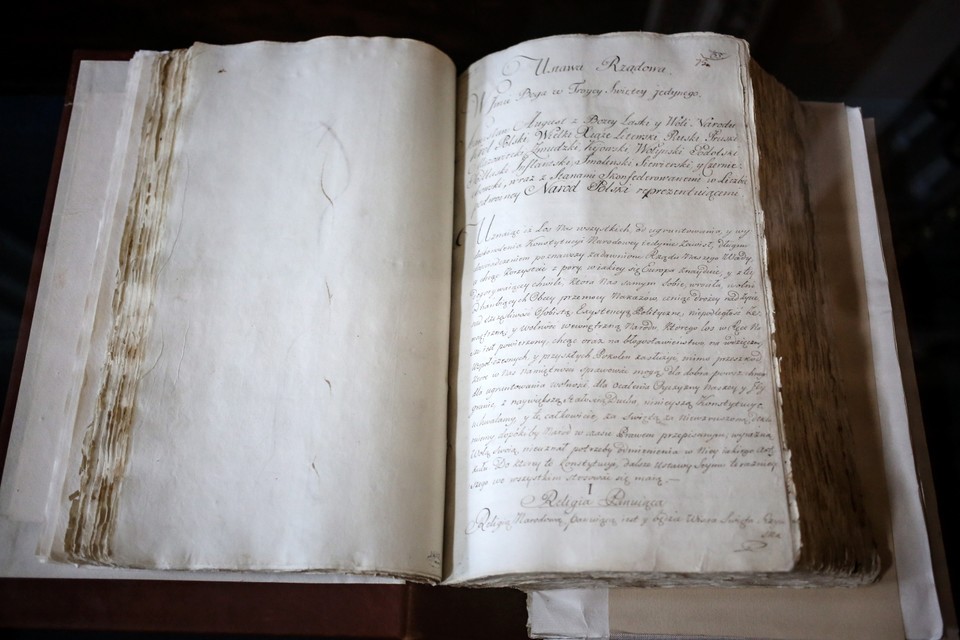 Ustawa Rządowa
W Imie Boga w Troycy Swiętey jedynego.
Stanisław August z Bozey Łaski y Woli Narodu
Krol Polski, Wielki Xiąże Litewski, Ruski, Pruski
Mazowiecki, Zmudzki, Kijowski, Wołynski, Podolski
Podlaski, Inflantski, Smolenski, Siewierski, y Czernie-
chowski, wraz z Stanami Skonfederowanemi w liczbie
podwoyney Narod Polski reprezentuiącemi
Uznaiąc iż Los Nas wszystkich, od ugruntowania, y wy-
doskonalenia Konstytucyi Narodowey jedynie zawisł, długim
doswiadczeniem poznawszy zadawnione Rządu Naszego Wady,
a chcąc korzystać z pory, w iakiey się Europa znayduie, y z tey
dogorywaiącey chwili, ktora Nas samym sobie wrociła, wolni
od hanbiących Obcey przemocy Nakazow, ceniąc drożey nad życie,
nad szczęsliwosc Osobistą, Exystencyą Polityczną, niepodległosc ze-
wnętrzną, y wolnosc wewnętrzną Narodu, ktorego los w ręce Na-
sze iest powierzony, chcąc oraz na błogosławienstwo, na wdzięcznosc
Wspołczesnych, y przyszłych Pokolen zasłużyc, mimo przeszkod
ktore w Nas namiętnosci sprawowac mogą, dla dobra powszechnego
dla ugruntowania wolnosci, dla ocalenia Oyczyzny Naszey, y Iey
granic, z naywiększą stałoscią Ducha, ninieyszą Konstytucyę
uchwalamy, y tę całkowicie za swiętą, za niewzruszoną dekla-
ruiemy, dopokiby Narod w czasie Prawem przepisanym, wyrazną
Wolą swoią, nieuznał potrzeby odmienienia w Niey iakiego Arty-
kułu. Do ktorey to Konstytucyi, dalsze Ustawy Seymu teraznieysz-
szego we wszystkim stosowac się maią. —
I
Religia Panuiąca
Religią Narodową panuiącą iest y będzie Wiara Swięta, Rzym-
ska